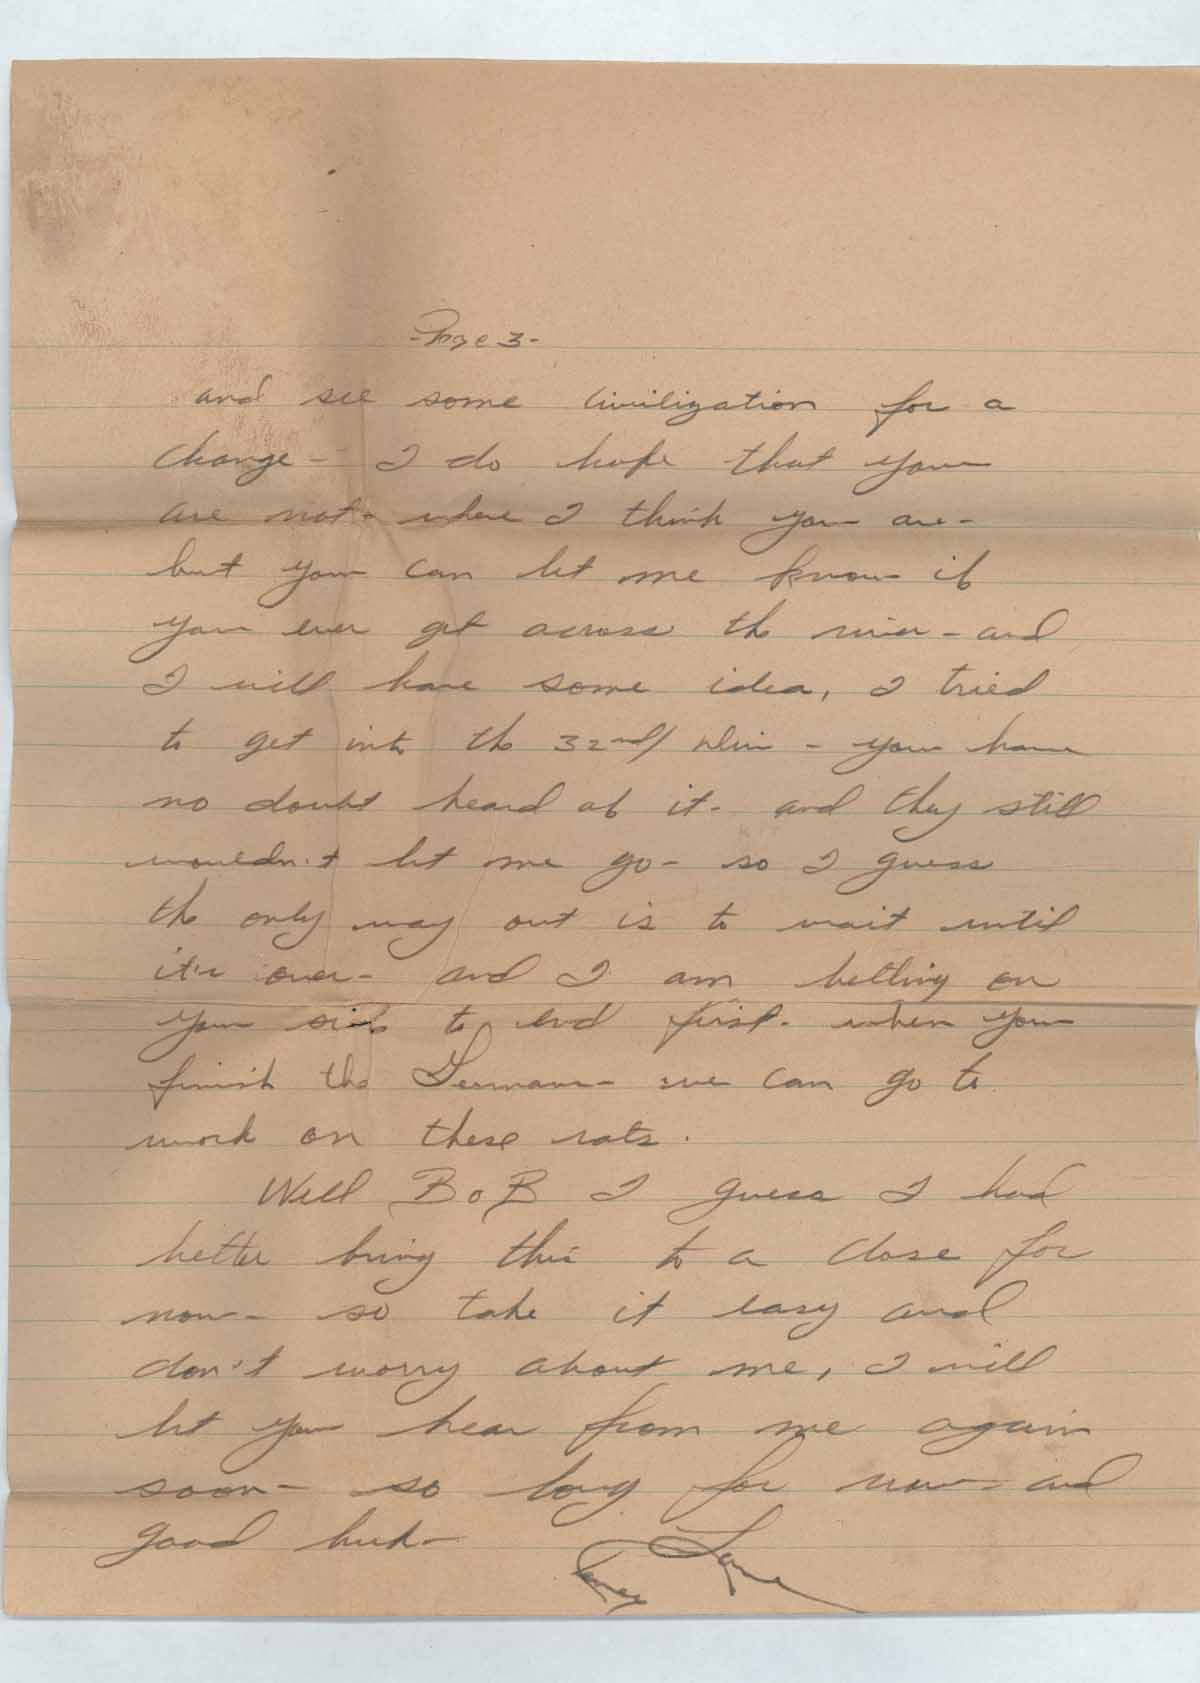 -Page 3-
and see some civilization for a
change - I do hope that you
are not - where I think you are -
but you can let me know if
you ever get across the river - and
I will have some idea, I tried
to get into the 32nd/ Div - you have
no doubt heard of it - and they still
wouldn't let me go - so I guess
the only way out is to wait until
it's over - and I am betting on
your side to end first - when you
finish the Germans - we can go to
work on these rats.
Well BoB I guess I had
better bring this to a close for
now - so take it easy and
don't worry about me, I will
let you hear from me again
soon - so long for now - and
good luck -
Love